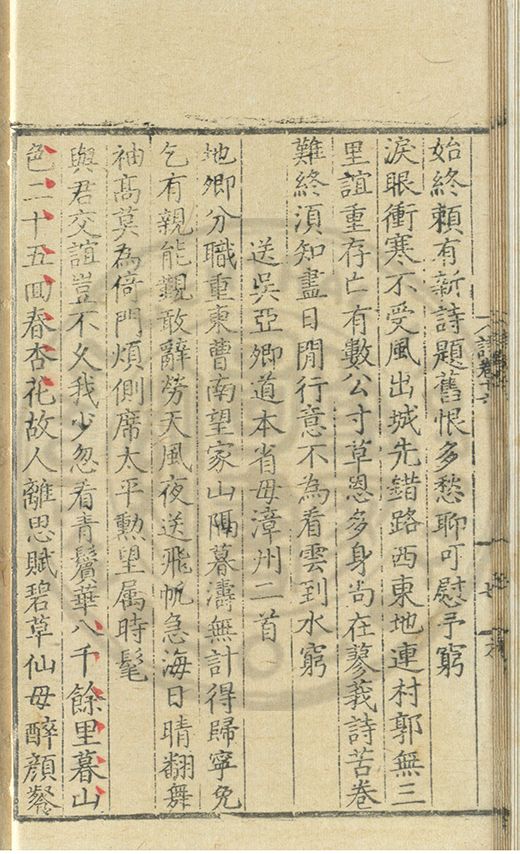 始終頼有新詩題舊恨多愁聊可慰予窮
淚眼衝寒不受風出城先錯路西東地連村郭無三
里誼重存亡有數公寸草恩多身尚在蓼莪詩苦卷
難終須知盡日閒行意不為看雲到水窮
送吳亞卿道本省母漳州二首
地卿分職重東曹南望家山隔暮濤無計得歸寧免
乞有親能觀敢辭勞天風夜送飛帆急海日晴翻舞
袖高莫為倚門煩側席太平勲望属時髦
與君交誼豈不久我少忽看青鬢華八千餘里暮山
色二十五回春杏花故人離思賦碧草仙母醉顔餐